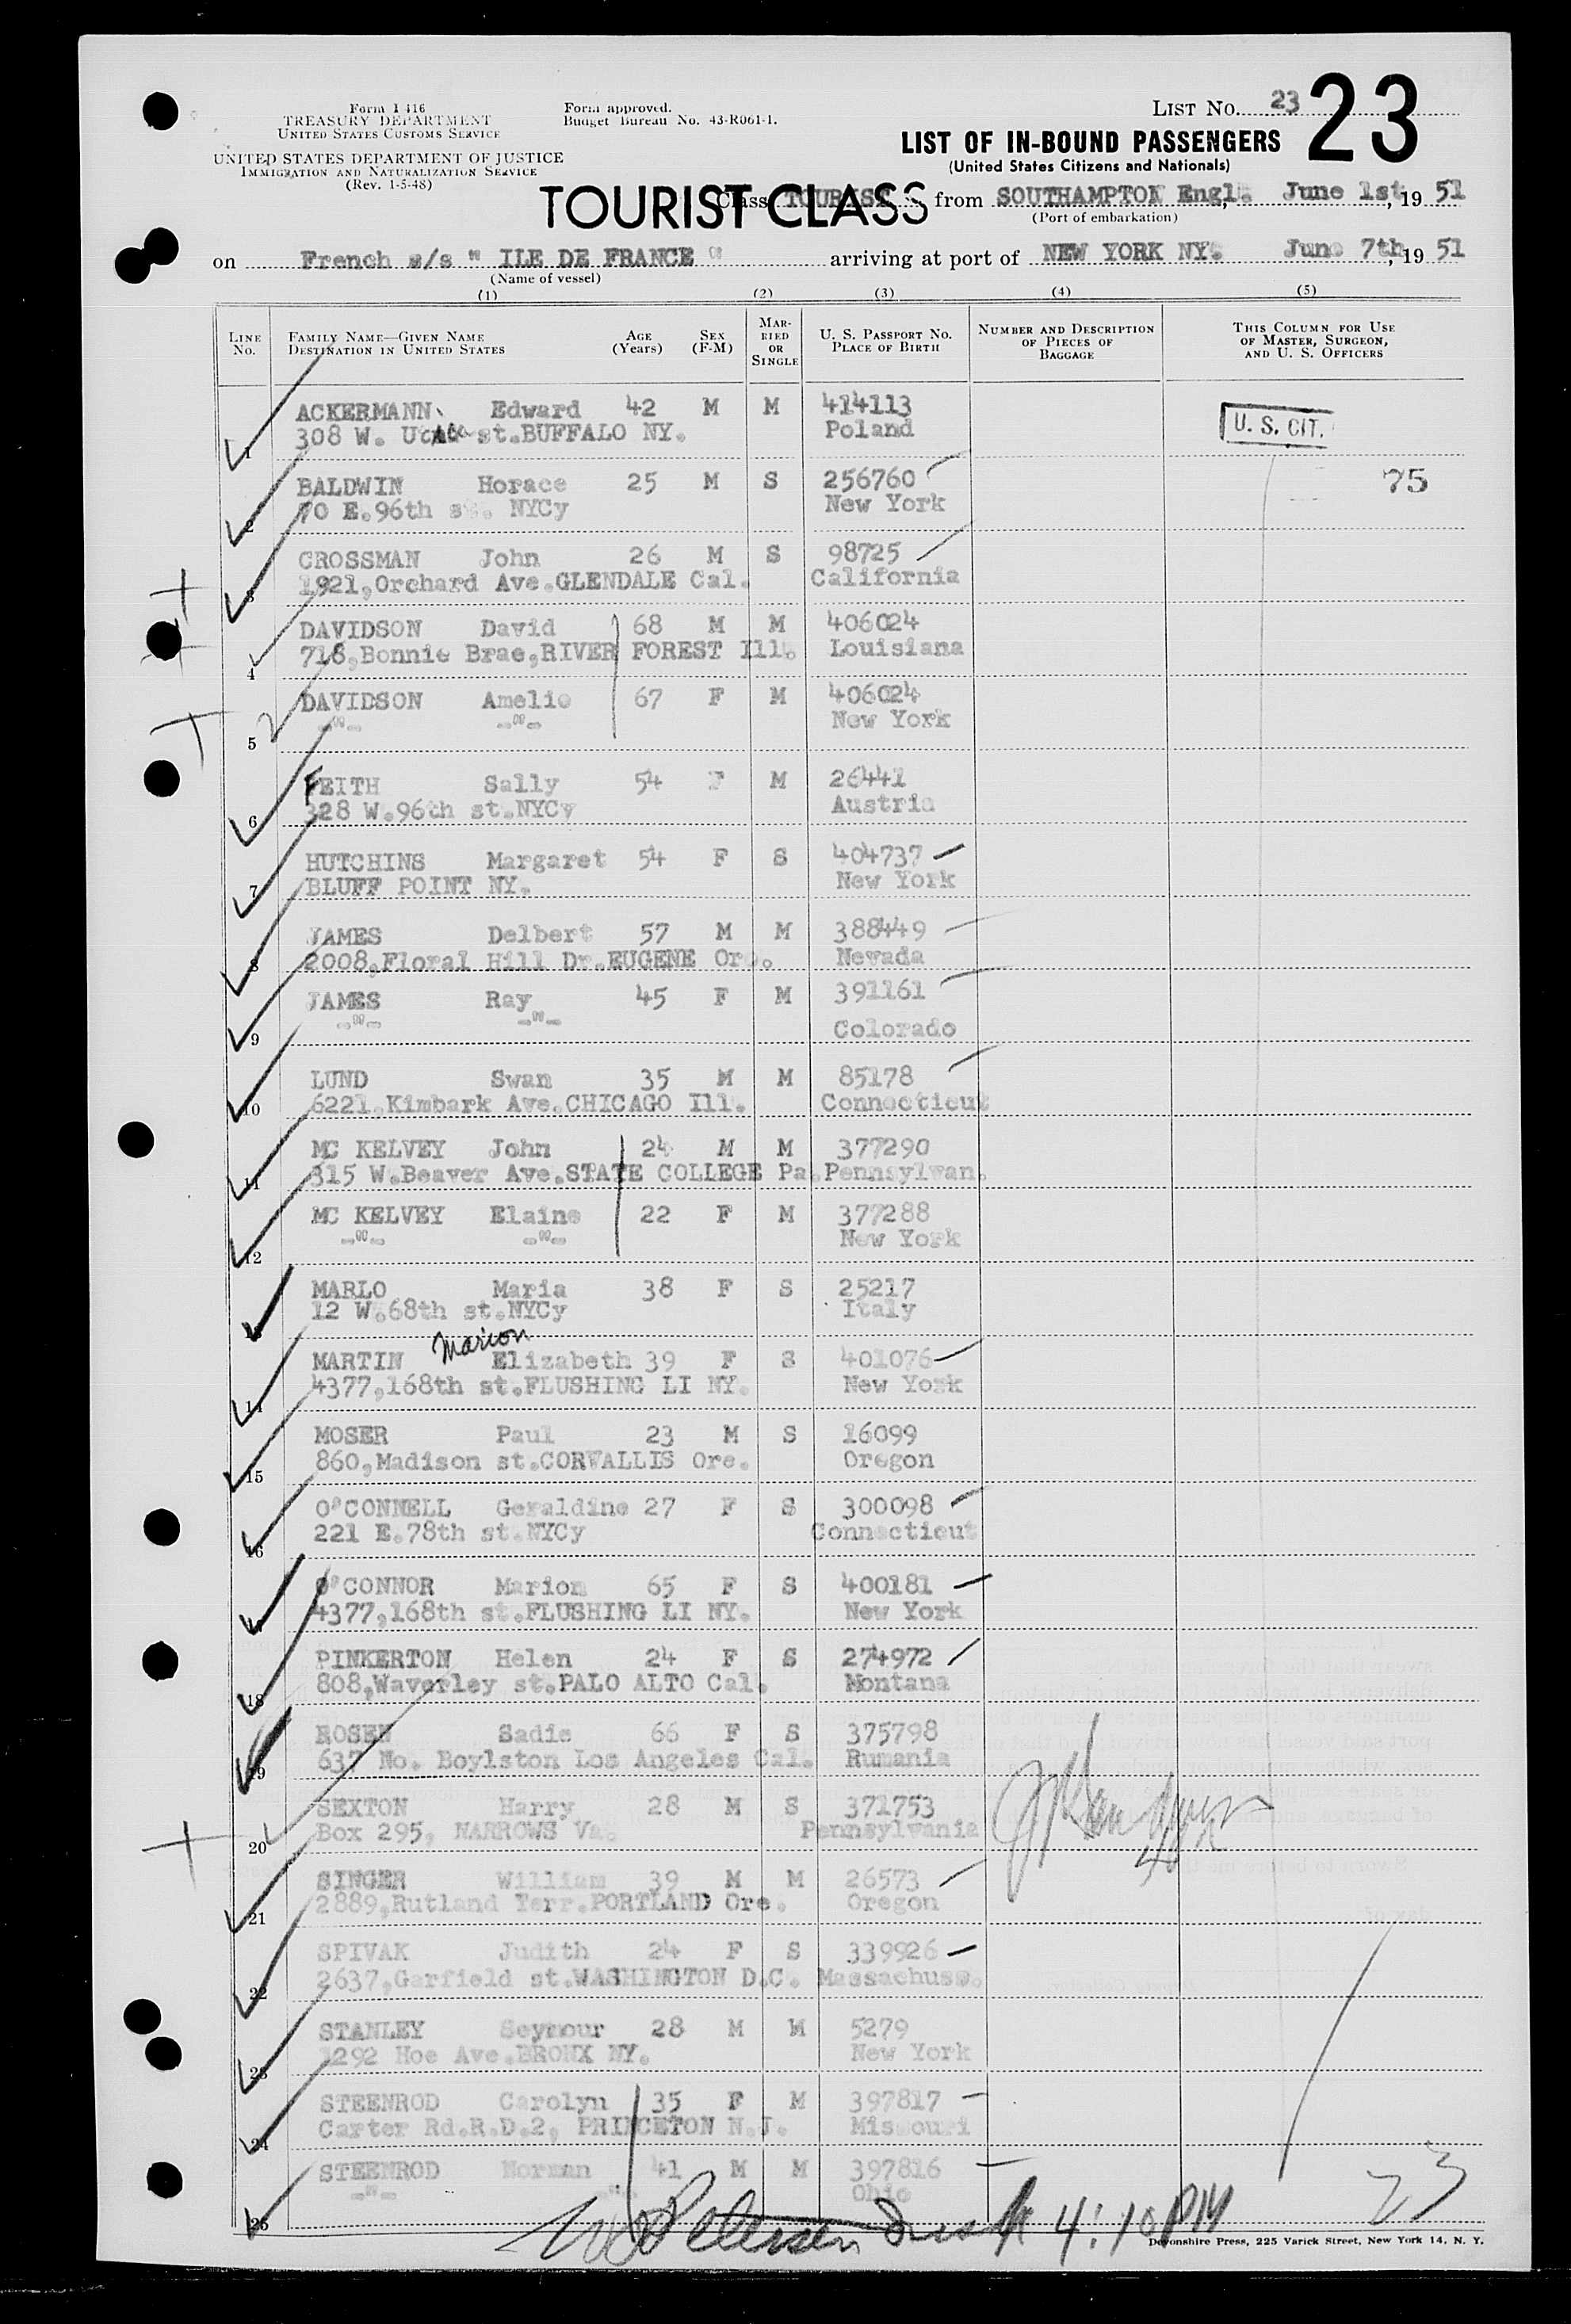 Form I 416
TREASURY DEPARTMENT
UNITED STATES CUSTOMS SERVICE
UNITED STATES DEPARTMENT OF JUSTICE
IMMIGRATION AND NATURALIZATION SERVICE
(Rev. 1-5-48)
Form approved.
Budget Bureau No. 43-R061-1.
LIST NO. 23 23
LIST OF IN-BOUND PASSENGERS
(United States Citizens and Nationals)
TOURIST CLASS
Class TOURIST from SOUTHAMPTON Engl. June 1st, 19 51
(Port of embarkation)
on French s/s " ILE DE FRANCE " arriving at port of NEW YORK NY. June 7th, 19 51
(Name of vessel)
(1) (2) (3) (4) (5)
LINE NO. FAMILY NAME—GIVEN NAME DESTINATION IN UNITED STATES AGE (Years) SEX (F-M) MARRIED OR SINGLE U. S. PASSPORT NO. PLACE OF BIRTH NUMBER AND DESCRIPTION OF PIECES OF BAGGAGE THIS COLUMN FOR USE OF MASTER, SURGEON, AND U. S. OFFICERS
1 ACKERMANN Edward 42 M M 414113 U. S. CIT.
308 W. st.BUFFALO NY. Poland
2 BALDWIN Horace 25 M S 256760 75
70 E.96th st. NYCy New York
3 CROSSMAN John 26 M S 98725
1921,Orchard Ave.GLENDALE Cal. California
4 DAVIDSON David 68 M M 406024
718,Bonnie Brae,RIVER FOREST Ill. Louisiana
5 DAVIDSON Amelie 67 F M 406024
-"- -"- New York
6 FEITH Sally 54 F M 26441
328 W.96th st.NYCy Austria
7 HUTCHINS Margaret 54 F S 404737
BLUFF POINT NY. New York
8 JAMES Delbert 57 M M 388449
2008,Floral Hill Dr.EUGENE Ore. Nevada
9 JAMES Ray 45 F M 391161
-"- -"- Colorado
10 LUND Swan 35 M M 85178
6221,Kimbark Ave.CHICAGO Ill. Connecticut
11 MC KELVEY John 24 M M 377290
315 W.Beaver Ave.STATE COLLEGE Pa. Pennsylvan.
12 MC KELVEY Elaine 22 F M 377288
-"- -"- New York
13 MARLO Maria 38 F S 25217
12 W.68th st.NYCy Italy
Marion
14 MARTIN Elizabeth 39 F S 401076
4377,168th st.FLUSHING LI NY. New York
15 MOSER Paul 23 M S 16099
860,Madison st.CORVALLIS Ore. Oregon
16 O'CONNELL Geraldine 27 F S 300098
221 E.78th st.NYCy Connecticut
17 O'CONNOR Marion 65 F S 400181
4377,168th st.FLUSHING LI NY. New York
18 PINKERTON Helen 24 F S 274972
808,Waverley st.PALO ALTO Cal. Montana
19 ROSEN Sadie 66 F S 375798
637 No. Boylston Los Angeles Cal. Rumania
20 SEXTON Harry 28 M S 371753
Box 295, NARROWS Va. Pennsylvania
21 SINGER William 39 M M 26573
2889,Rutland Terr.PORTLAND Ore. Oregon
22 SPIVAK Judith 24 F S 339926
2637,Garfield st.WASHINGTON D.C. Massachuss.
23 STANLEY Seymour 28 M M 5279
1292 Hoe Ave.BRONX NY. New York
24 STEENROD Carolyn 35 F M 397817
Carter Rd.R.D.2, PRINCETON N.J. Missouri
25 STEENROD Norman 41 M M 397816
-"- -"- Ohio
Petersen 4:10 PM 23
Devonshire Press, 225 Varick Street, New York 14, N. Y.